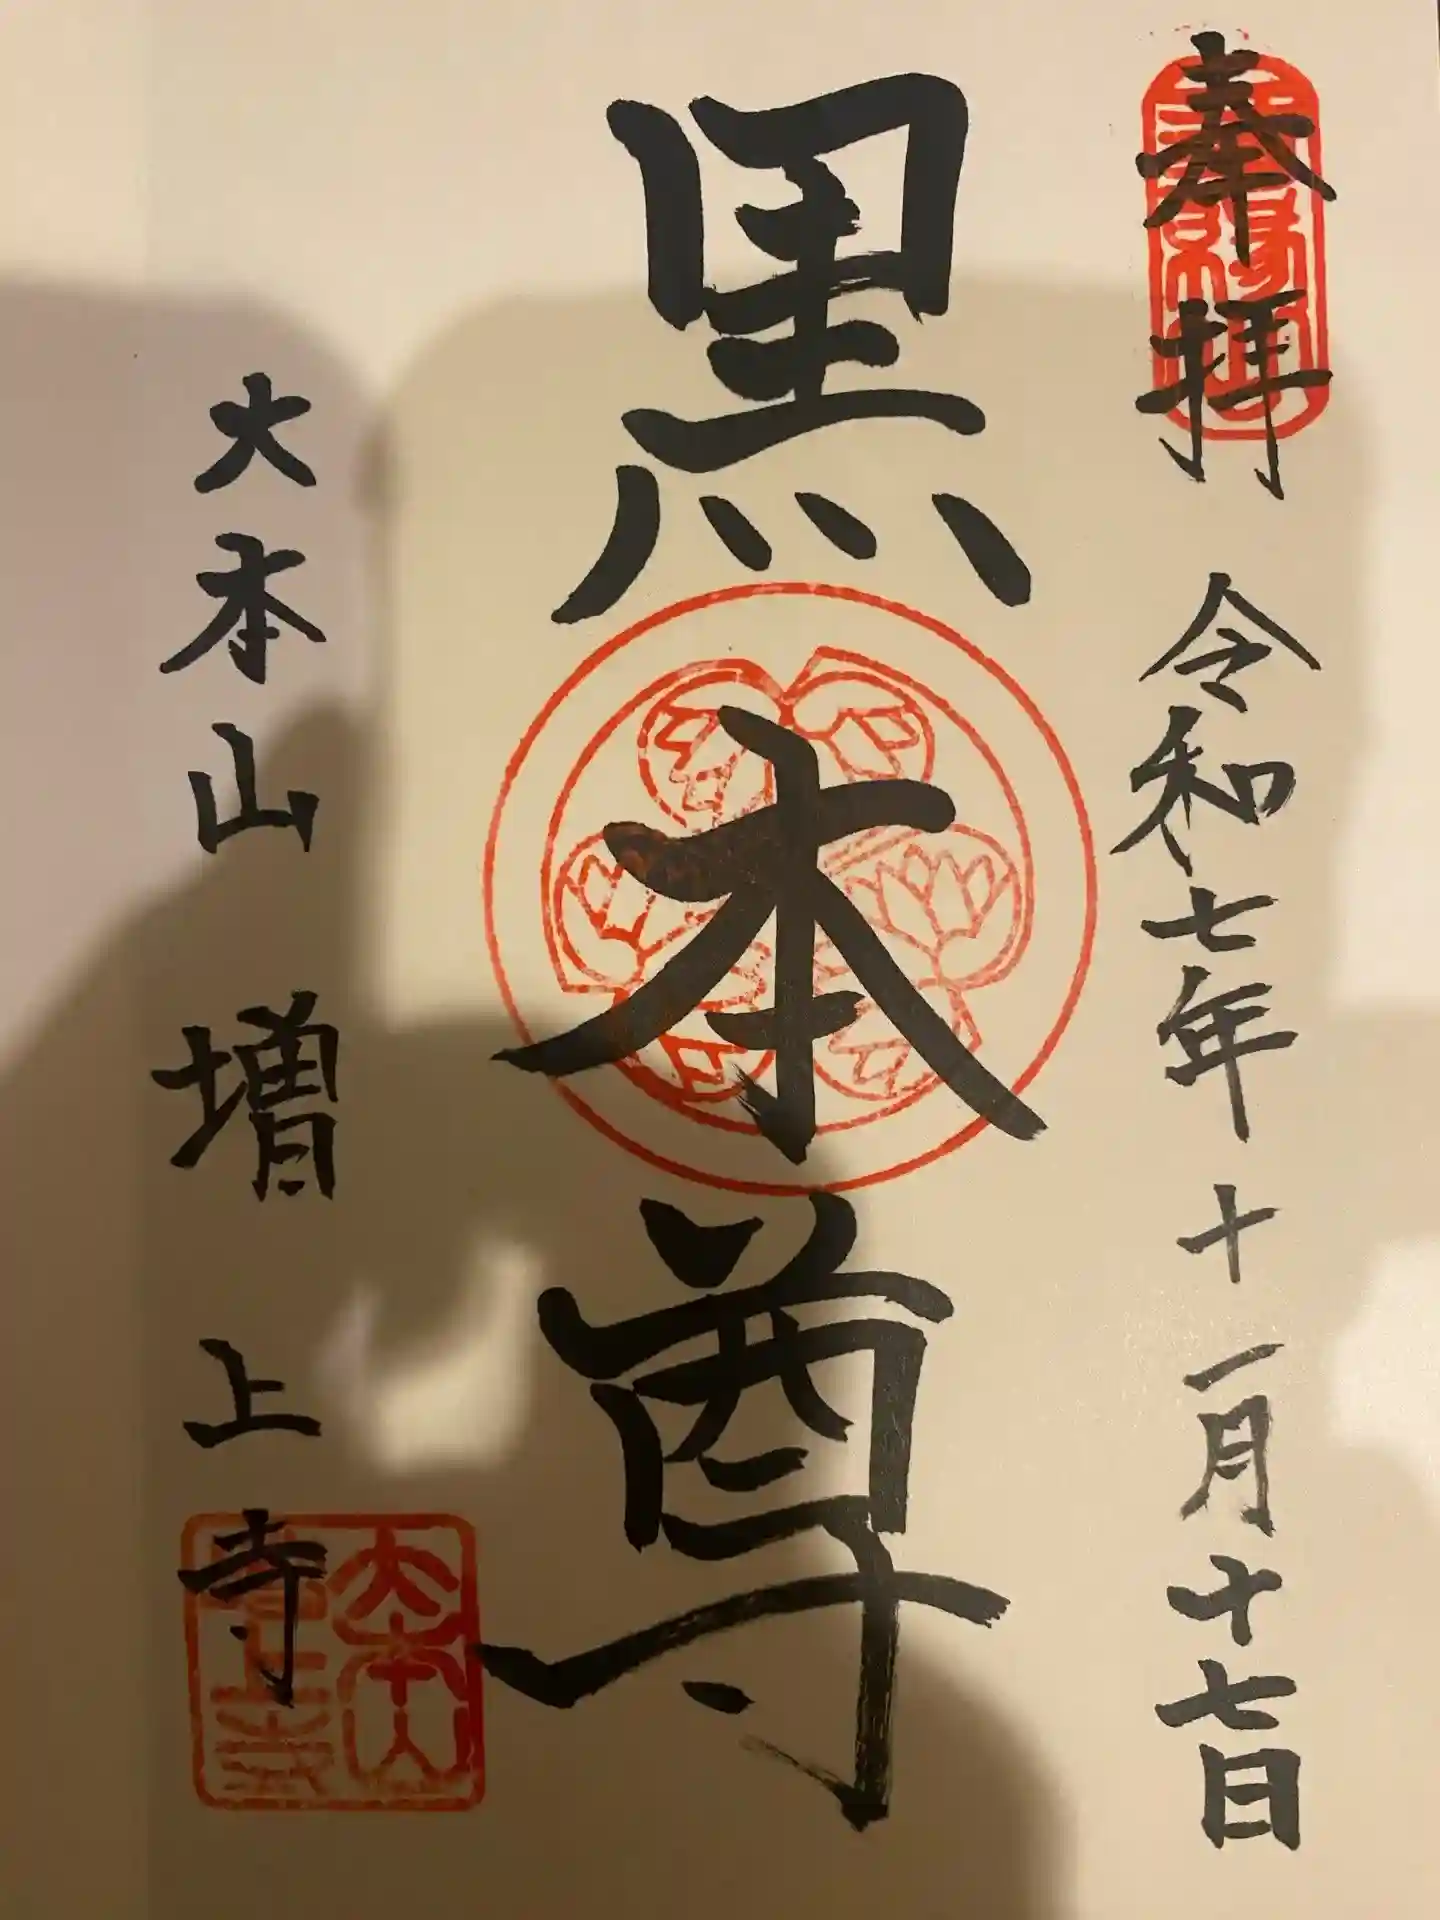 奉拝 令和七年十一月十七日
黒本尊
大本山 増上寺
大本山
増上寺